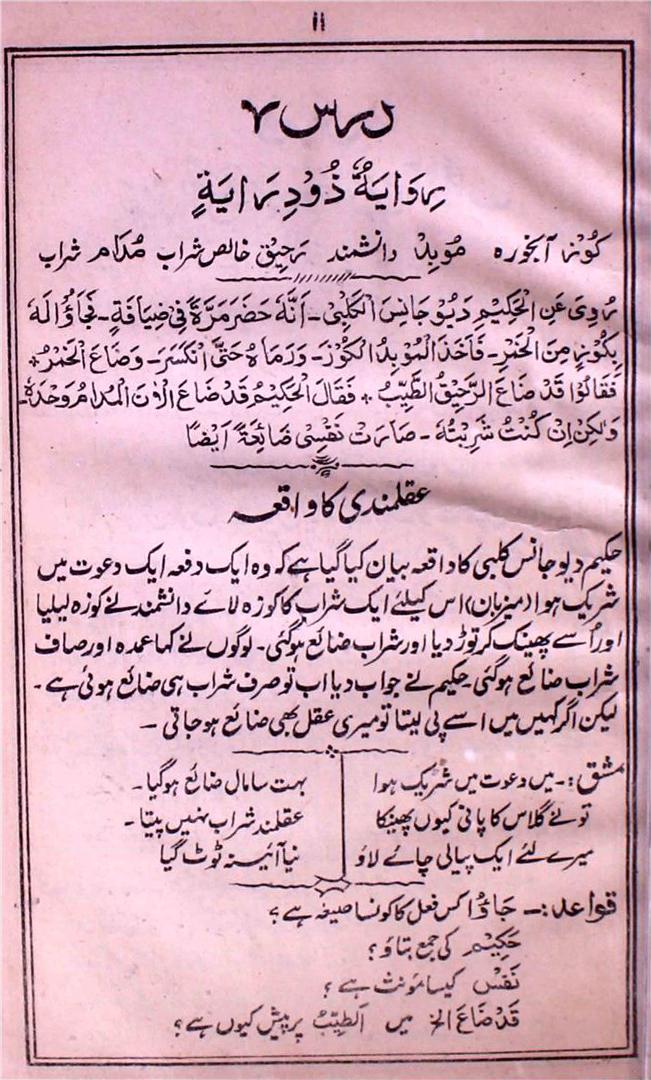 ۱۱
درس ۷
رِوَايَةٌ ذُوْدِرَايَةٍ
كُوْزٌ آبخورہ مُوْبِدٌ دانشمند رَحِيْقٌ خالص شراب مُدَامٌ شراب
رُوِىَ عَنِ الْحَكِيْمِ دَيُوْجَانِسَ الْكَلْبِىِّ - اَنَّهٗ حَضَرَ مَرَّةً فِىْ ضِيَافَةٍ - فَجَاؤُا لَهٗ
بِكُوْزٍ مِنَ الْخَمْرِ - فَاَخَذَ الْمُوْبِدُ الْكُوْزَ - وَرَمَاهُ حَتَّى انْكَسَرَ - وَضَاعَ الْخَمْرُ ٭
فَقَالُوْا قَدْ ضَاعَ الرَّحِيْقُ الطَّيِّبُ ٭ فَقَالَ الْحَكِيْمُ قَدْ ضَاعَ الْاٰنَ الْمُدَامُ وَحْدَهٗ -
وَلٰكِنْ اِنْ كُنْتُ شَرِبْتُهٗ - صَارَتْ نَفْسِىْ ضَائِعَةً اَيْضًا
عقلمندی کا واقعہ
حکیم دیوجانس کلبی کا واقعہ بیان کیا گیا ہے کہ وہ ایک دفعہ ایک دعوت میں
شریک ہوا (میزبان) اس کیلئے ایک شراب کا کوزہ لائے دانشمند نے کوزہ لیلیا
اور اُسے پھینک کر توڑ دیا اور شراب ضائع ہوگئی۔ لوگوں نے کہا عمدہ اور صاف
شراب ضائع ہوگئی۔ حکیم نے جواب دیا اب تو صرف شراب ہی ضائع ہوئی ہے۔
لیکن اگر کہیں میں اسے پی لیتا تو میری عقل بھی ضائع ہو جاتی ۔
مشق :۔ میں دعوت میں شریک ہوا
تو نے گلاس کا پانی کیوں پھینکا
میرے لئے ایک پیالی چائے لاؤ
بہت سا مال ضائع ہو گیا۔
عقلمند شراب نہیں پیتا۔
نیا آئینہ ٹوٹ گیا
قواعد :۔ جَاؤُا کس فعل کا کونسا صیغہ ہے؟
حَكِيْمٌ کی جمع بتاؤ؟
نَفْسٌ کیسا مؤنث ہے؟
قَدْ ضَاعَ الخ میں اَلطَّيِّبُ پر پیش کیوں ہے؟